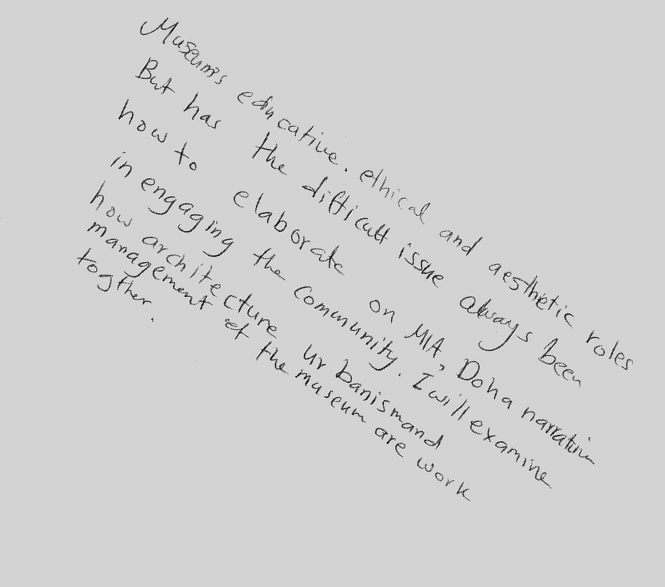 Museums educative. ethical and aesthetic roles
But has the difficult issue always been
how to elaborate on MIA, Doha narration
in engaging the community. I will examine
how architecture urbanismand
management of the museum are work
togther.